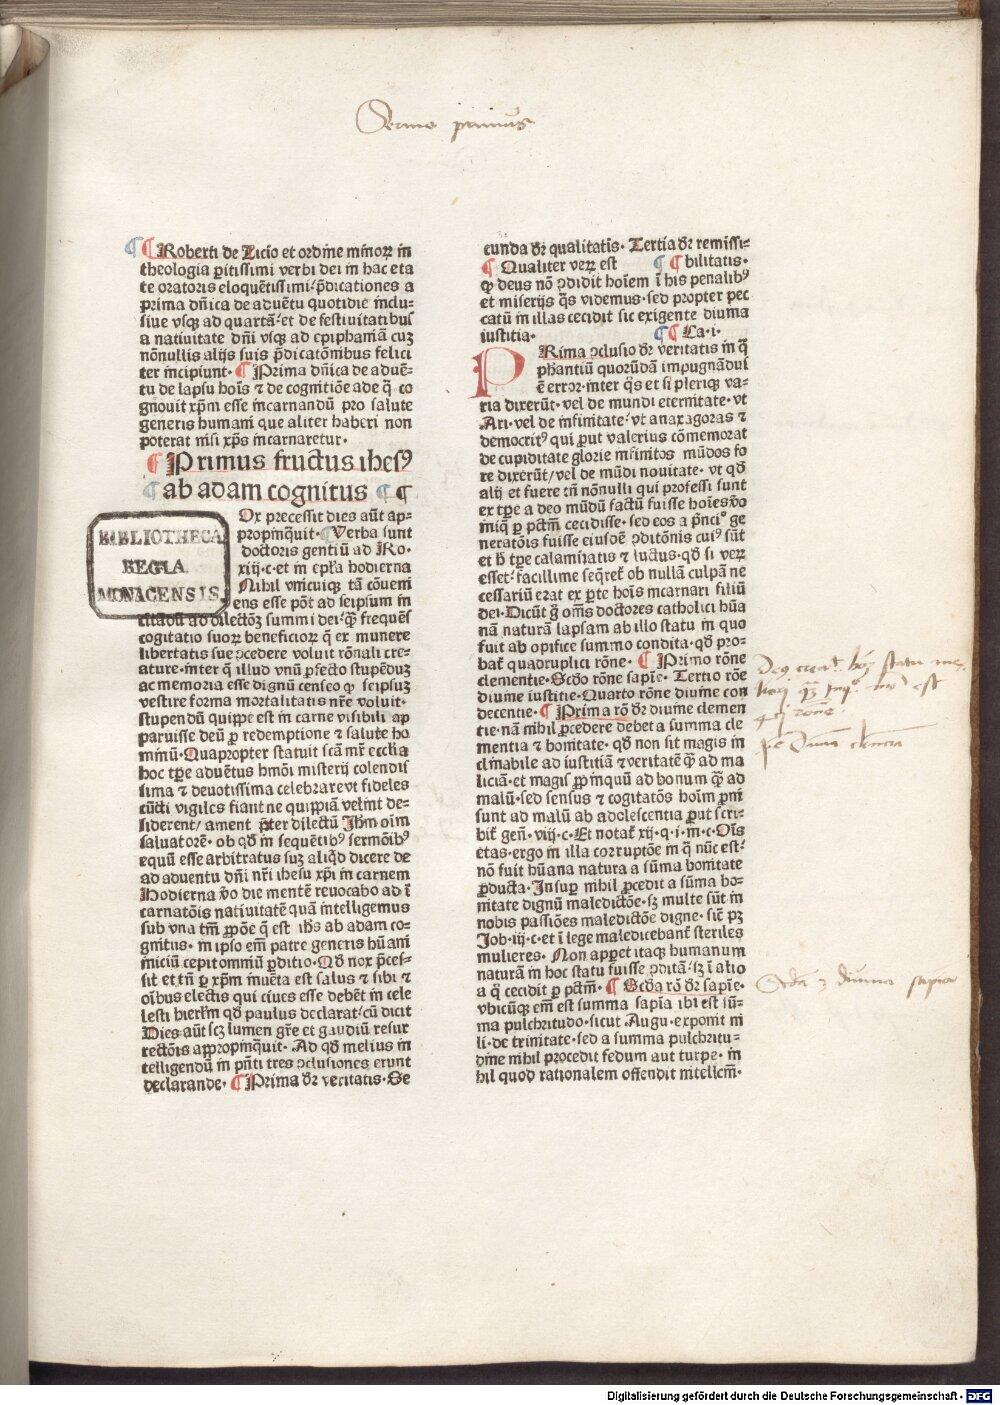 Sermo primus
¶ Roberti de Licio et ordine minoꝝ in
theologia ꝑitissimi verbi dei in hac eta
te oratoris eloquētissimi/ p̄dicationes a
prima dn̄ica de aduētu quotidie inclu-
siue vsq̨ ad quartā· et de festiuitatibus
a natiuitate dn̄i vsq̨ ad epiphaniā cuz
nōnullis alijs suis p̄dicatōnibus felici
ter incipiunt· ¶ Prima dn̄ica de aduē-
tu de lapsu hoīs ⁊ de cognitiōe ade q̄ co
gnouit xp̄m esse incarnandū pro salute
generis humani que aliter haberi non
poterat nisi xp̄s incarnaretur·
¶ Primus fructus ihesꝰ
ab adam cognitus ¶
Ox precessit dies aūt ap-
propinquit· Verba sunt
doctoris gentiū ad Ro·
xiij·c·et in ep̄la hodierna
Nihil vnicuiq̨ tā cōueni
ens esse pōt ad seipsum in
citādū ad dilectōꝫ summi dei· q̄ȝ frequēs
cogitatio suoꝝ beneficioꝝ q̄ ex munere
libertatis sue ꝓcedere voluit rōnali cre-
ature·inter q̄ illud vnū ꝓfecto stupēduȝ
ac memoria esse dignū censeo qꝫ seipsuȝ
vestire forma mortalitatis nr̄e voluit·
stupendū quippe est in carne visibili ap
paruisse deū ꝓ redemptione et salute ho
minū· Quapropter statuit scā mr̄ ecclia
hoc tꝑe aduētus hmōi misterij colendis
sima et deuotissima celebrare vt fideles
cūcti vigiles fiant ne quippiā velint de-
siderent/ ament p̄ter dilectū Ihm̄ oīm
saluatorē· ob qd̄ in sequētibꝰ sermōibꝰ
equū esse arbitratus suȝ aliqd̄ dicere de
ad aduentu dn̄i nr̄i ihesu xp̄i in carnem
Hodierna v̄o die mentē reuocabo ad ī
carnatōis natiuitatē quā intelligemus
sub vna tm̄ ꝓpōe q̄ est ihs̄ ab adam co-
gnitus· in ipso em̄ patre generis hūani
iniciū cepit omniū ꝑditio· Qd̄ nox p̄ces-
sit et tn̄ ꝑ xp̄m inuēta est salus ⁊ sibi ⁊
oībus electis qui ciues esse debēt in cele
lesti hierl̄m qd̄ paulus declarat· cū dicit
Dies aūt scȝ lumen gr̄e et gaudiū resur
rectōis appropinquit· Ad qd̄ melius in
telligendū in pn̄ti tres ꝯclusiones erunt
declarande· ¶ Prima dr̄ veritatis· Se
cunda dr̄ qualitatis· Tertia dr̄ remissi-
¶ Qualiter veꝝ est ¶ ¶ bilitatis·
qꝫ deus nō ꝯdidit hoīem ī his penalibꝰ
et miserijs q̄s videmus· sed propter pec
catū in illas cecidit sic exigente diuina
iustitia· ¶ ¶ Ca·i·
PRima ꝯclusio dr̄ veritatis in q̄
phantiū quorūdā impugnādus
ē error·inter q̄s et si pleriq̨ va-
ria dixerūt· vel de mundi eternitate· vt
Ari· vel de infinitate· vt anaxagoras ⁊
democritꝰ qui ꝓut valerius cōmemorat
de cupiditate glorie infinitos mūdos fo
re dixerūt/ vel de mūdi nouitate· vt qd̄
alij et fuere tn̄ nōnulli qui professi sunt
ex tꝑe a deo mūdū factū fuisse hoīes v̄o
iniq̄ ꝑ pctm̄ cecidisse· sed eos a p̄nciº ge
neratōis fuisse eiusdē ꝯditōnis cuiꝰ sūt
et b̄ tꝑe calamitatis ⁊ luctus· qd̄ si veꝝ
esset· facillime seq̄ret̄ ob nullā culpā ne
cessariū erat ex ꝑte hoīs incarnari filiū
dei· Dicūt g̊ om̄s doctores catholici hūa
nā naturā lapsam ab illo statu in quo
fuit ab opifice summo condita· qd̄ pro-
bat̄ quadruplici rōne· ¶ Primo rōne
clementie· Scd̄o rōne sapīe· Tertio rōe
diuine iustitie· Quarto rōne diuine con
decentie· ¶ Prima rō dr̄ diuine clemen
tie· nā nihil ꝓcedere debet a summa cle
mentia et bonitate· qd̄ non sit magis in
clinabile ad iustitiā ⁊ veritatē q̄ȝ ad ma
liciā· et magis ꝓpinquū ad bonum q̄ȝ ad
malū· sed sensus ⁊ cogitatōs hoīm ꝓni
sunt ad malū ab adolescentia ꝓut scri-
bit̄ gen̄· viij·c· Et notat̄ xij·q·i·in·c· Oīs
etas· ergo in illa corruptōe in q̄ nūc est·
nō fuit hūana natura a sūma bonitate
ꝓducta· Insuꝑ nihil ꝓcedit a sūma bo-
nitate dignū maledictōe· sȝ multe sūt in
nobis passiōes maledictōe digne· sic̄ pȝ
Job·iij·c·et ī lege maledicebant̄ steriles
mulieres· Non apꝑet itaq̨ humanum
naturā in hoc statu fuisse ꝯditā· sȝ ī alio
a q̄ cecidit ꝑ pctm̄· ¶ Scd̄a rō dr̄ sapīe·
vbicūq̨ em̄ est summa sapīa ibi est sū-
ma pulchritudo· sicut Augu· exponit in
li· de trinitate· sed a summa pulchritu-
dine nihil procedit fedum aut turpe· in
hil quod rationalem offendit intellcm̄·
BIBLIOTHECA
REGIA
MONACENSIS.
Digitalisierung gefördert durch die Deutsche Forschungsgemeinschaft - DFG